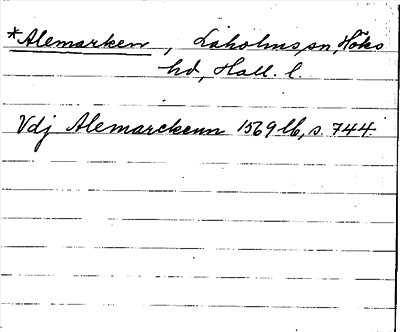 *Alemarken, Laholms sn, Höks
hd, Hall. l.
Vdj Alemarckenn 1569 lb, s. 744.